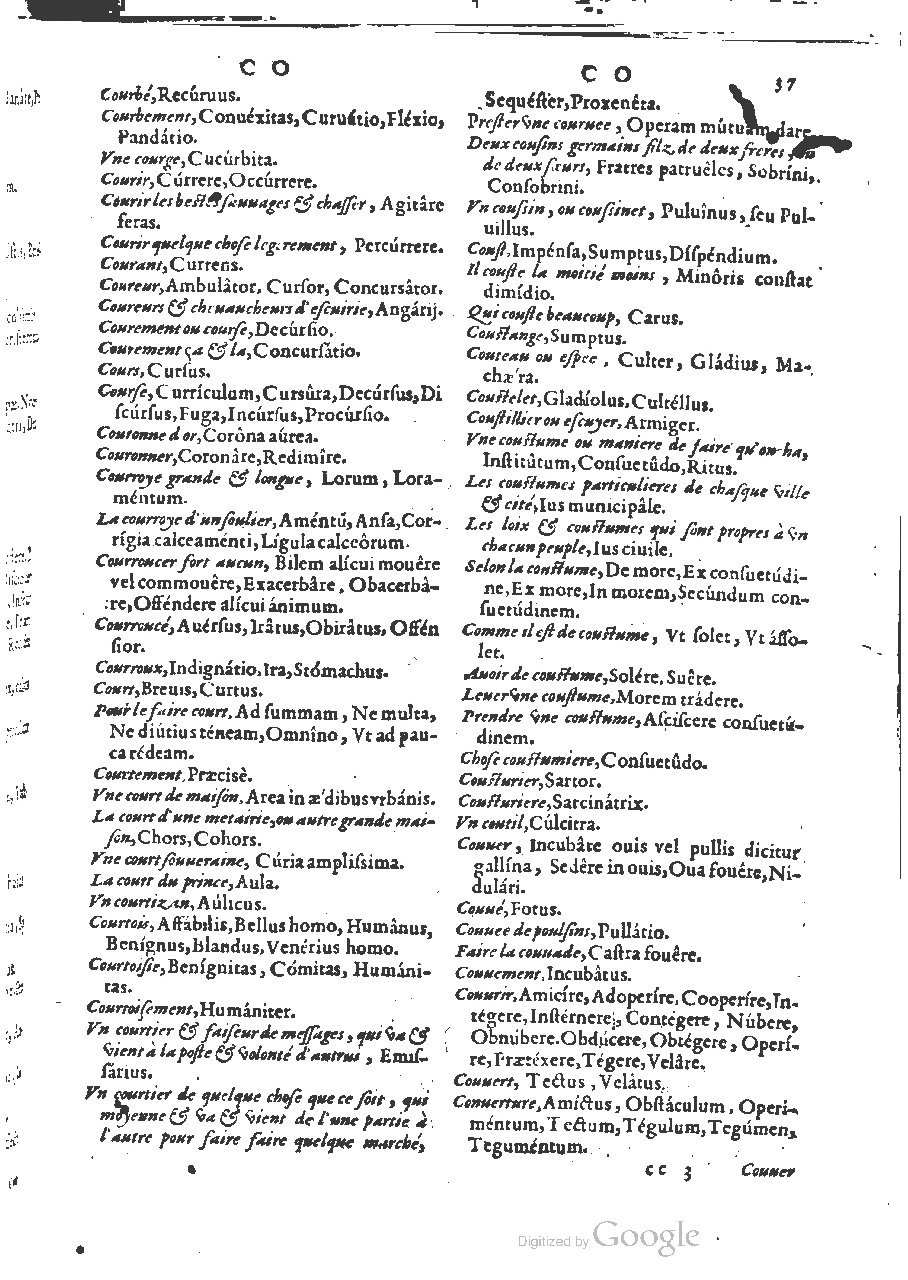 C O
Courbé, Recúruus.
Courbement, Conuéxitas, Curuátio, Fléxio,
Pandátio.
Vne courge, Cucúrbita.
Courir, Cúrrere, Occúrrere.
Courir les bestes sauuages & chasser, Agitâre
feras.
Courir quelque chose legerement, Percúrrere.
Courant, Currens.
Coureur, Ambulâtor, Cursor, Concursâtor.
Coureurs & cheuaucheurs d'escuirie, Angárij.
Courement ou course, Decúrsio.
Courement ça & la, Concursâtio.
Cours, Cursus.
Course, Currículum, Cursûra, Decúrsus, Di
scúrsus, Fuga, Incúrsus, Procúrsio.
Couronne d'or, Corôna aúrea.
Couronner, Coronâre, Redimîre.
Courroye grande & longue, Lorum, Lora-
méntum.
La courroye d'un soulier, Améntũ, Ansa, Cor-
rígia calceaménti, Lígula calceôrum.
Courroucer fort aucun, Bilem alícui mouêre
vel commouêre, Exacerbâre, Obacerbâ-
re, Offéndere alícui ánimum.
Courroucé, Auérsus, Irâtus, Obirâtus, Offén
sior.
Courroux, Indignátio, Ira, Stómachus.
Court, Breuis, Curtus.
Pour le faire court, Ad summam, Ne multa,
Ne diútius téneam, Omnîno, Vt ad pau-
ca rédeam.
Courtement, Præcisè.
Vne court de maison, Area in æ'dibus vrbánis.
La court d'une metairie, ou autre grande mai-
son, Chors, Cohors.
Vne court souueraine, Cúria amplissima.
La court du prince, Aula.
Vn courtizan, Aúlicus.
Courtois, Affábilis, Bellus homo, Humânus,
Benígnus, Blandus, Venérius homo.
Courtoisie, Benígnitas, Cómitas, Humáni-
tas.
Courtoisement, Humániter.
Vn courtier & faiseur de messages, qui va &
vient à la poste & volonté d'autruy, Emis-
sârius.
Vn courtier de quelque chose que ce soit, qui
moyenne & va & vient de l'une partie à
l'autre pour faire faire quelque marché,
C O
37
Sequéster, Proxenéta.
Prester vne couruee, Operam mútuam dare
Deux cousins germains filz de deux freres, ou
de deux sœurs, Fratres patruêles, Sobríni,
Consobrini.
Vn coussin, ou coussinet, Puluînus, seu Pul-
uillus.
Coust, Impénsa, Sumptus, Dispéndium.
Il couste la moitié moins, Minôris constat
dimídio.
Qui couste beaucoup, Carus.
Coustange, Sumptus.
Couteau ou espee, Culter, Gládius, Ma-
chæ'ra.
Coustelet, Gladíolus, Cultéllus.
Coustillier ou escuyer, Armiger.
Vne coustume ou maniere de faire qu'on ha,
Institûtum, Consuetûdo, Ritus.
Les coustumes particulieres de chasque ville
& cité, Ius municipâle.
Les loix & coustumes qui sont propres à vn
chacun peuple, Ius ciuile.
Selon la coustume, De more, Ex consuetúdi-
ne, Ex more, In morem, Secúndum con-
suetúdinem.
Comme il est de coustume, Vt solet, Vt ásso-
let.
Auoir de coustume, Solére, Suêre.
Leuer vne coustume, Morem trádere.
Prendre vne coustume, Asciscere consuetú-
dinem.
Chose coustumiere, Consuetûdo.
Cousturier, Sartor.
Cousturiere, Sarcinátrix.
Vn coutil, Cúlcitra.
Couuer, Incubâte ouis vel pullis dicitur
gallína, Sedêre in ouis, Oua fouére, Ni-
dulári.
Couué, Fotus.
Couuee de poulsins, Pullátio.
Faire la couuade, Castra fouêre.
Couuement, Incubâtus.
Couurir, Amicíre, Adoperíre, Cooperíre, In-
tégere, Instérnere, Contégere, Núbere,
Obnúbere, Obdúcere, Obtégere, Operí-
re, Prætéxere, Tégere, Velâre.
Couuert, Tectus, Velâtus.
Couuerture, Amíctus, Obstáculum, Operi-
méntum, Tectum, Tégulum, Tegúmen,
Teguméntum.
cc 3 Couuer
Digitized by Google